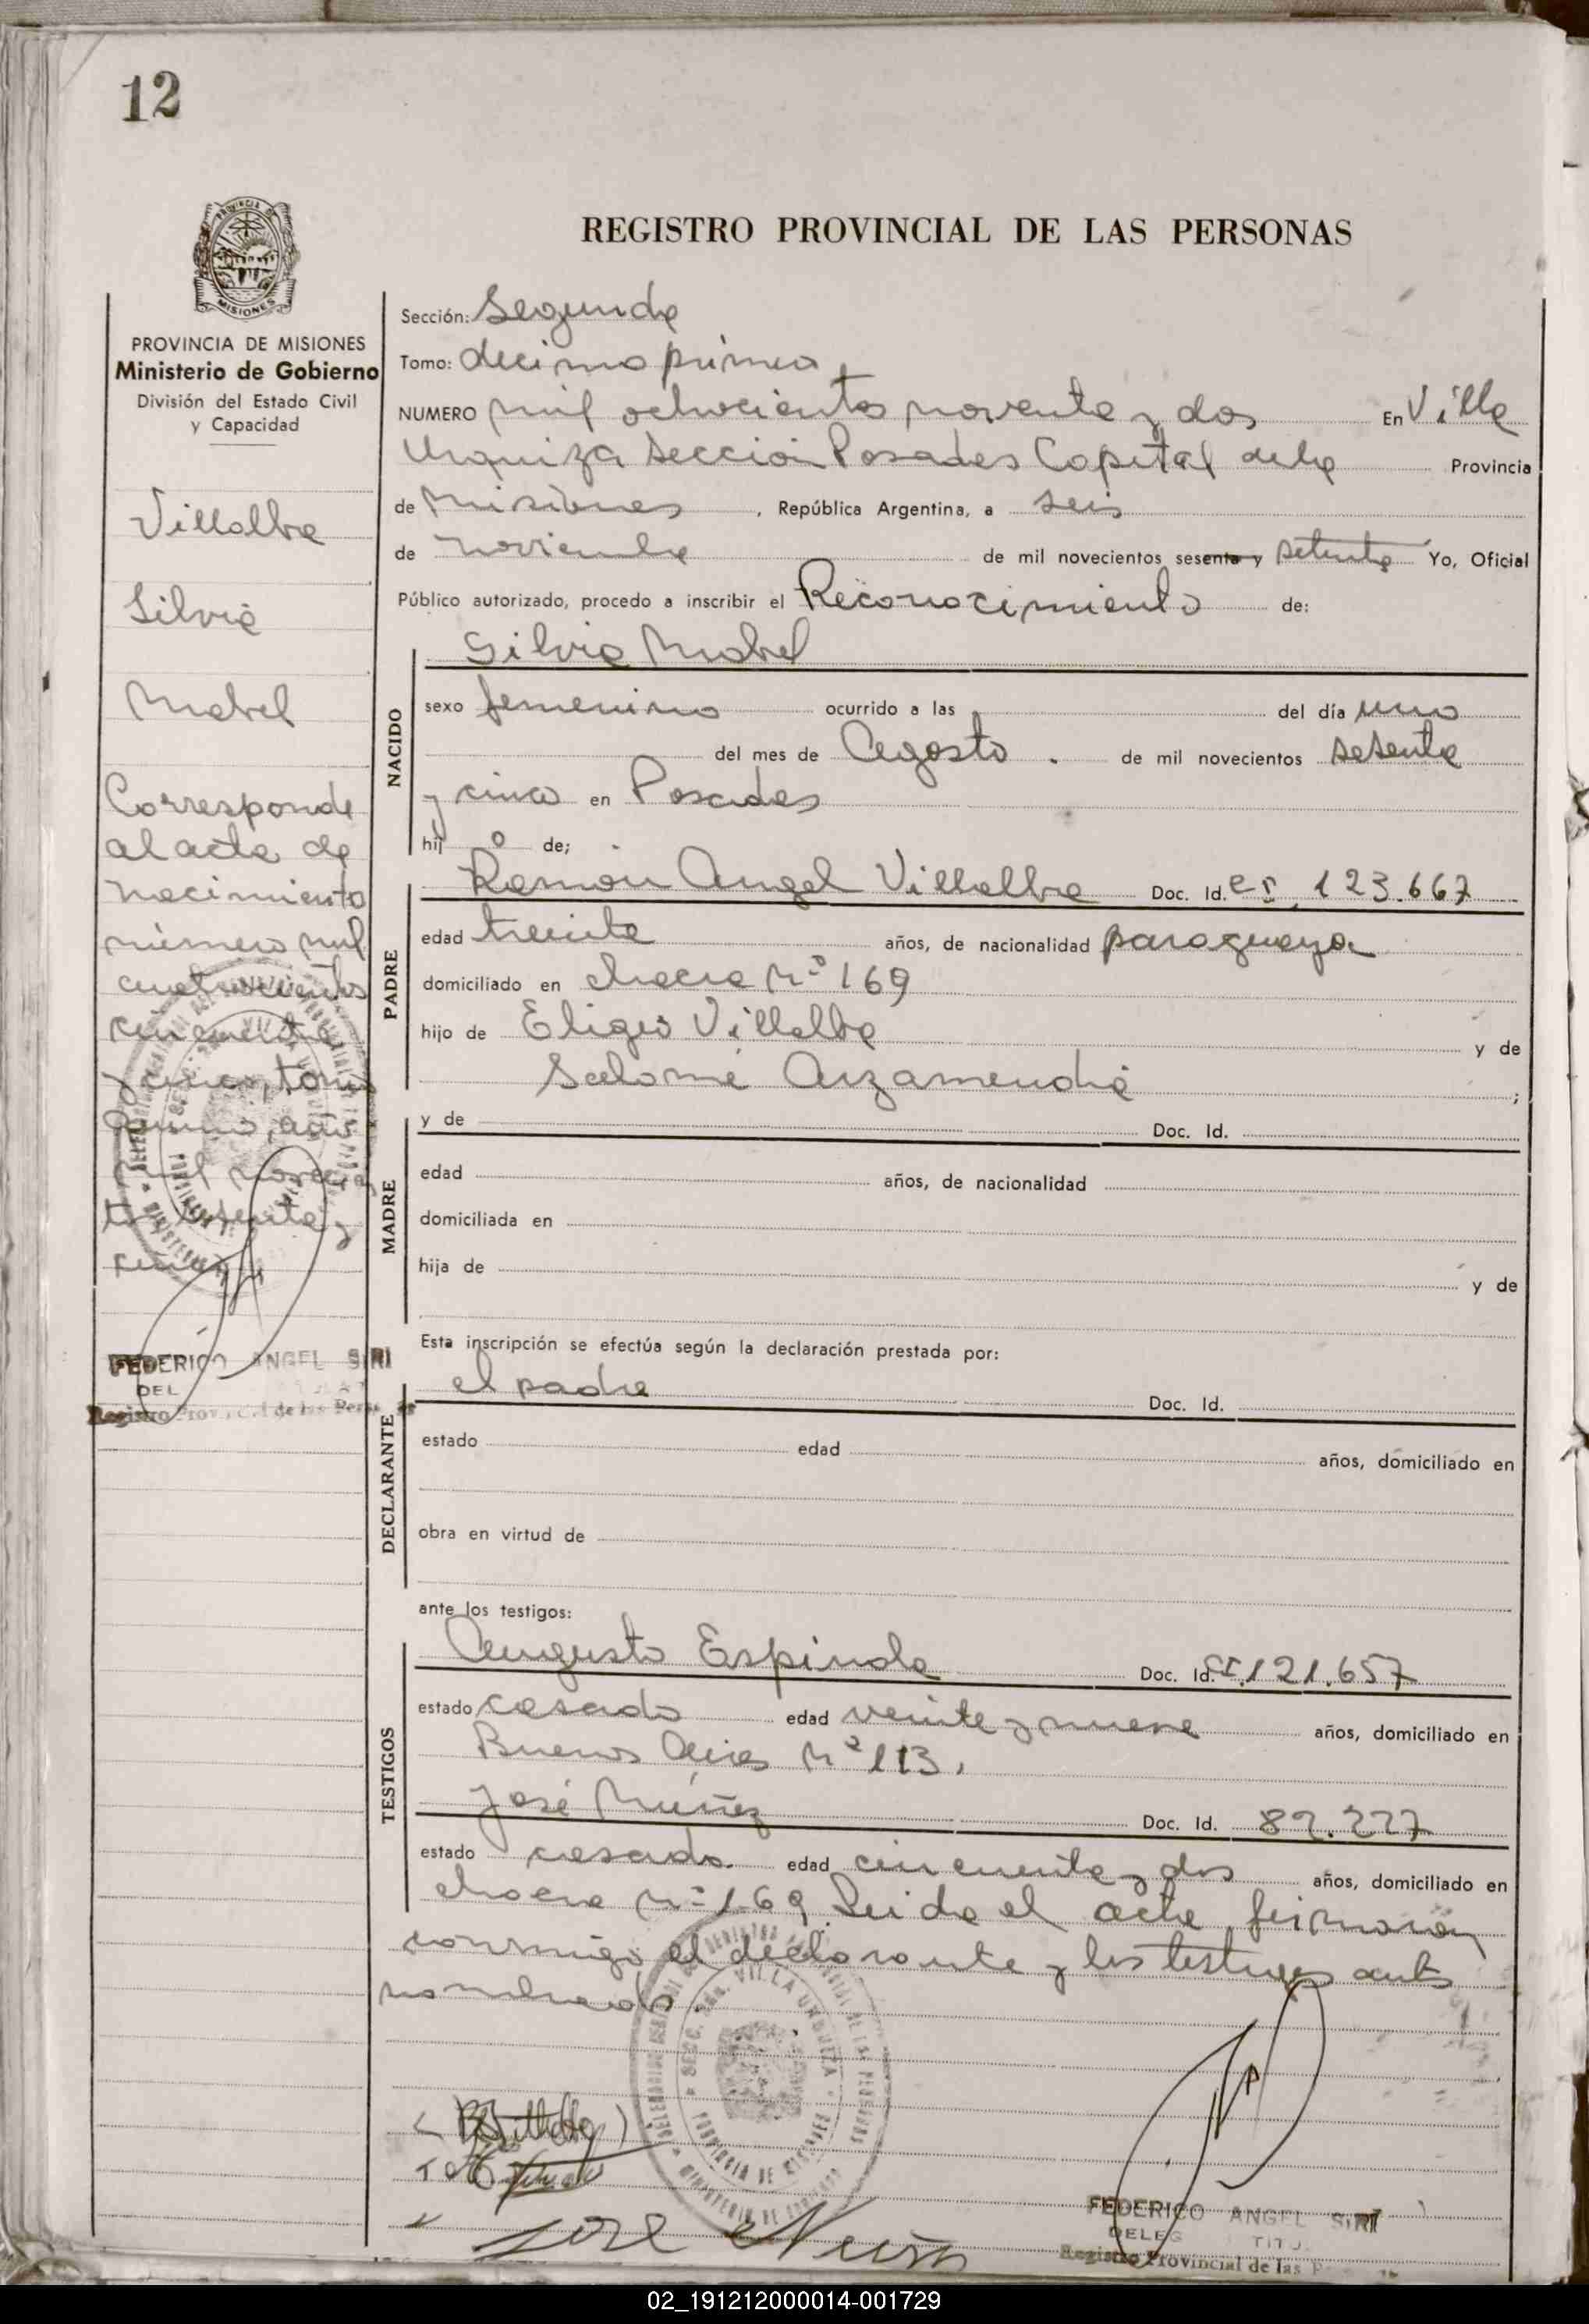 12
REGISTRO PROVINCIAL DE LAS PERSONAS
MISIONES
PROVINCIA DE MISIONES
Ministerio de Gobierno
División del Estado Civil
y Capacidad
Villalba
Silvia
Mabel
Corresponde
al acta de
nacimiento
número mil
cuatrocientos
cincuenta
y cinco, tomo
año
mil novecien
tos setenta y
cinco
FEDERICO ANGEL SIRI
DEL
Registro Provincial de las Personas
Sección: Segunda
Tomo: decimo primero
NUMERO mil ochocientos noventa y dos En Villa
Urquiza Sección Posadas Capital de la Provincia
de Misiones, República Argentina, a seis
de noviembre de mil novecientos sesenta y setenta Yo, Oficial
Público autorizado, procedo a inscribir el Reconocimiento de:
Silvia Mabel
NACIDO
sexo femenino ocurrido a las del día uno
del mes de Agosto. de mil novecientos setenta
y cinco en Posadas
hij o de;
PADRE
Ramón Angel Villalba Doc. Id. CI. 123.667
edad treinta años, de nacionalidad paraguaya
domiciliado en chacra Nº 169
hijo de Eligio Villalba y de
Salomé Arzamendia ;
MADRE
y de Doc. Id.
edad años, de nacionalidad
domiciliada en
hija de y de
Esta inscripción se efectúa según la declaración prestada por:
DECLARANTE
el padre Doc. Id.
estado edad años, domiciliado en
obra en virtud de
ante los testigos:
TESTIGOS
Augusto Espindola Doc. Id. CI. 121.657
estado casado edad veinte y nueve años, domiciliado en
Buenos Aires Nº 113.
José Núñez Doc. Id. 89.227
estado casado edad cincuenta y dos años, domiciliado en
chacra nº 169 Leida el acta, firmaron
conmigo el declarante y los testigos antes
nombrado.
SECC. 2da. VILLA URQUIZA
PROVINCIA DE MISIONES
MINISTERIO DE GOBIERNO
José Nuñez
FEDERICO ANGEL SIRI
DELEG TITU
Registro Provincial de las P
02_191212000014-001729